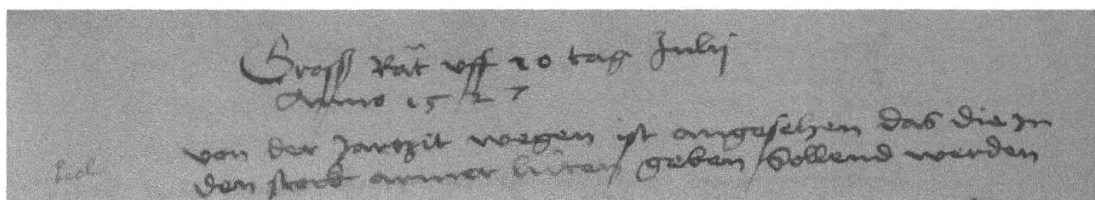 Gross Rät uff 20 tag Julij
Anno 1527
von der Jarzit wegen ist angesehen das die In
den stock armer lüten geben sollend werden